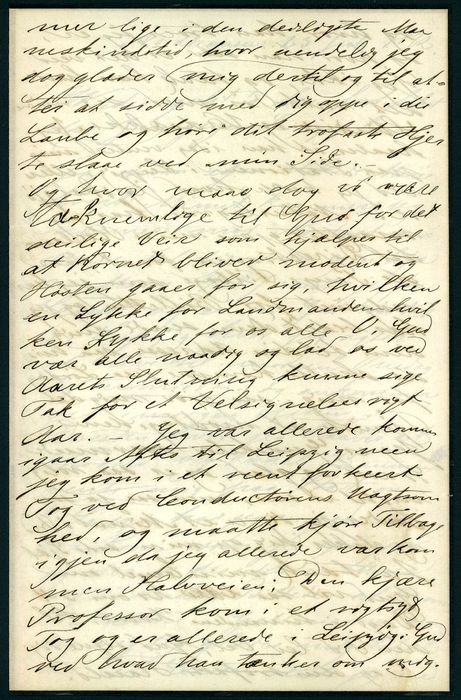 mer lige i den deiligste Maa
neskindstid, hvor uendelig jeg
dog glæder mig dertil og til at-
ter at sidde med dig oppe i din
Laube og høre dit trofaste Hjer
te slaae ved min Side. -
Og hvor maae dog vi være
taknemlige til Gud for det
deilige Veir som hjælper til
at Kornet bliver modent og
Høsten gaaer for sig, hvilken
en Lykke for Landmanden hvil
ken Lykke for os alle O, Gud
vær alle naadig og lad os ved
Aarets Slutning kunne sige
Tak for et Velsignelsesrigt
Aar. - Jeg var allerede kommen
igaar Aftes til Leipzig men
jeg kom i et reent forkeert
Tog ved Conducteurens Uagtsom
hed, og maatte kjøre Tilbage
igjen da jeg allerede var kom
men Halvveien; Den kjære
Professor kom i et rigtigt
Tog og er allerede i Leipzig. Gud
ved hvad han tænker om mig.